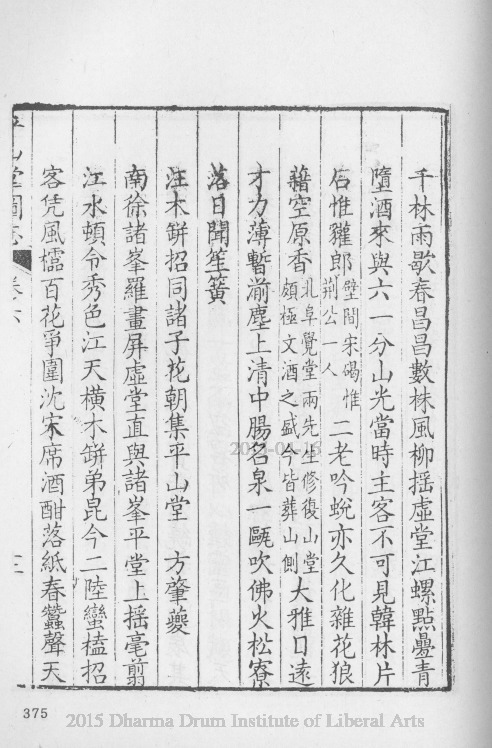 千林雨歇春昌昌數株風柳揺虛堂江螺點疊青
墮酒來與六一分山光當時主客不可見韓林片
石惟獾郎壁間宋碣惟荆公一人二老吟蛻亦久化雜花狼
藉空原香北阜覺堂兩先生修復山堂頗極文酒之盛今皆葬山側大雅日遠
才力薄暫湔塵上清中腸名泉一甌吹佛火松寮
落日聞笙簧
汪木缾招同諸子花朝集平山堂　方肇夔
南徐諸峯羅畫屏虛堂直與諸峯平堂上揺毫翦
江水頓令秀色江天横木缾弟昆今二陸蠻榼招
客凭風櫺百花爭圍沈宋席酒酣落紙春蠶聲天
平山堂圖志
卷六
375
2015 Dharma Drum Institute of Liberal Arts